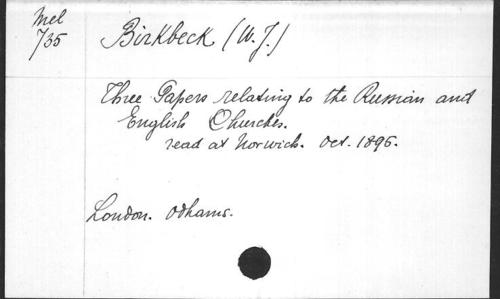 Mel
735
Birkbeck (W.J.)
Three Papers relating to the Russian and
English Churches.
read at Norwich. Oct. 1895.
London. Odhams.